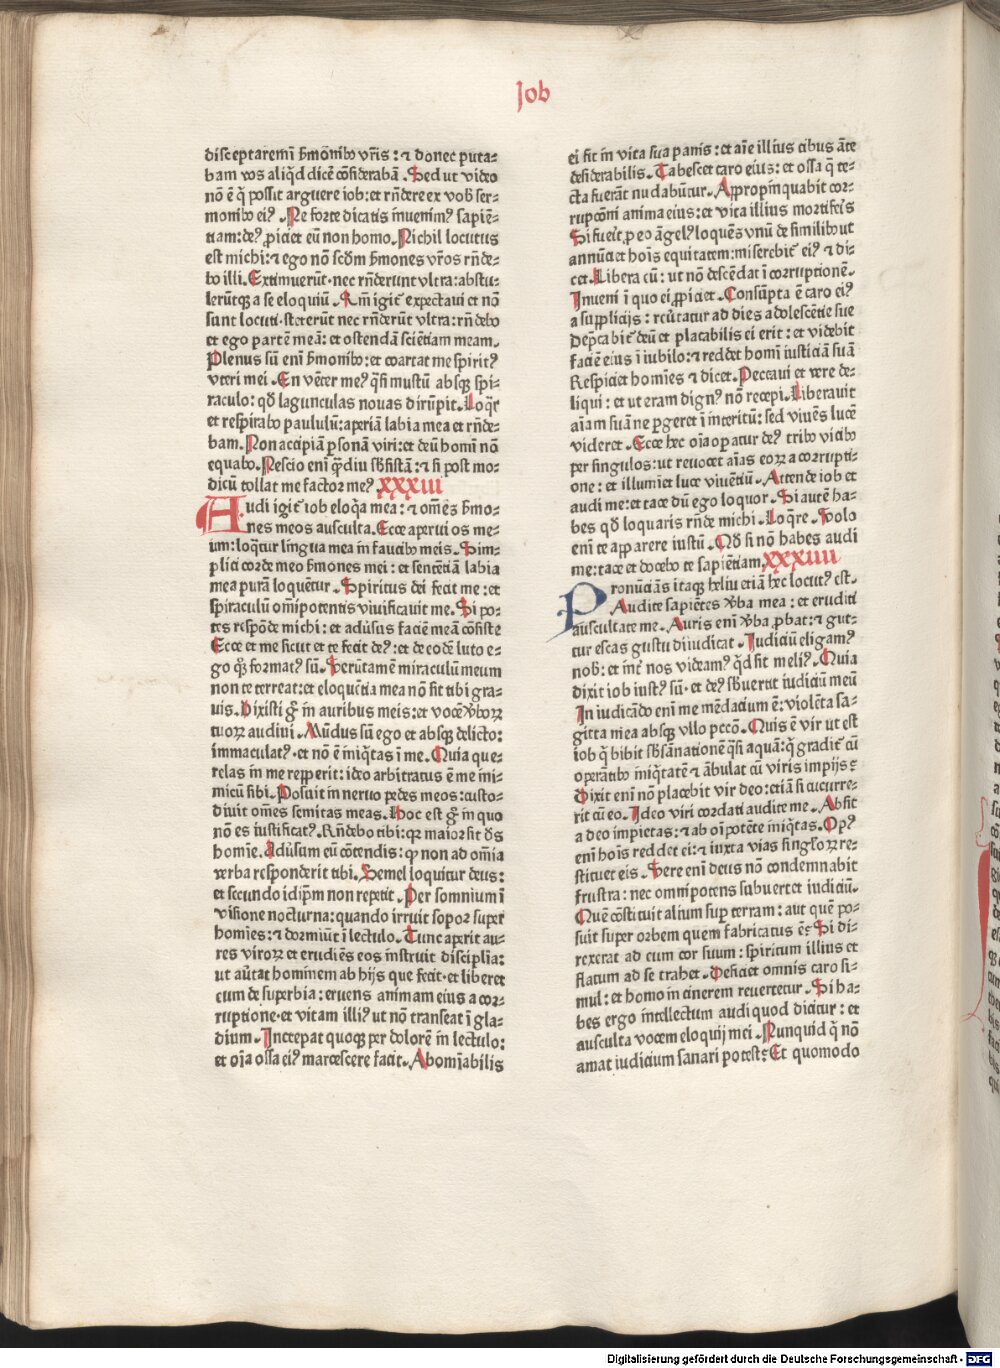 Job
disceptaremĩ ẜmonibꝰ vr̃is: ⁊ donec puta⸗
bam vos aliq̃d dicẽ cõsiderabã. Sed ut video
nõ ẽ q̃ possit arguere iob: et rñdere ex vobꝭ ser⸗
monibꝰ eiꝰ. Ne forte dicatis invenimꝰ sapiẽ⸗
tiam: deꝰ ꝓiciet eũ non homo. Nichil locutus
est michi: ⁊ ego nõ scd̃m ẜmones vr̃os rñde⸗
bo illi. Extimuerũt· nec rñderunt vltra: abstu⸗
lerũtqꝫ a se eloquiũ. Qm̃ igiẽ expectaui et nõ
sunt locuti· steterũt nec rñderũt vltra: rñdebo
et ego partẽ meã: et ostendã sciẽtiam meam.
Plenus sũ enĩ ẜmonibꝰ: et coartat me spiritꝰ
vteri mei. En vẽter meꝰ q̃si mustũ absqꝫ spi⸗
raculo: qd̃ lagunculas nouas dirũpit. Loq̃r
et respirabo paululũ: aperiã labia mea et rñde⸗
bam. Non accipiã ꝑsonã viri: et deũ homĩ nõ
equabo. Nescio enĩ q̃diu sb̃sistã: ⁊ si post mo⸗
dicũ tollat me factor meꝰ. XXXIII
Audi igiẽ iob eloq̃a mea: ⁊ om̃es ẜmo⸗
nes meos ausculta. Ecce aperui os me⸗
um: loq̃tur lingua mea in faucibꝰ meis. Sim⸗
plici corde meo ẜmones mei: et sentẽtiã labia
mea purã loquẽtur. Spiritus dei fecit me: et
spiraculũ om̃ipotentis viuificauit me. Si po⸗
tes respõde michi: et adũsus faciẽ meã cõsiste
Ecce et me sicut et te fecit deꝰ: et de eodẽ luto e⸗
go q̃ꝫ formatꝰ sũ. Verũtamẽ miraculũ meum
non te terreat: et eloquẽtia mea nõ sit tibi gra⸗
uis. Dixisti g̃ in auribus meis: et vocẽ v̾boꝝ
tuoꝝ audiui. Mũdus sũ ego et absqꝫ delicto:
immaculatꝰ· et nõ ẽ iniq̃tas ĩ me. Quia que⸗
relas in me repperit: ideo arbitratus ẽ me ini⸗
micũ sibi. Posuit in neruo pedes meos: custo⸗
diuit om̃es semitas meas. Hoc est g̃ in quo
nõ es iustificatꝰ. Rñdebo tibi: qꝛ maior sit dẽs
homĩe. Adũsum eũ cõtendis: ꝙ non ad om̃ia
verba responderit tibi. Semel loquitur deus:
et secundo idip̃m non repetit. Per somnium ĩ
visione nocturna: quando irruit sopor super
homĩes: ⁊ dormiũt ĩ lectulo. Tunc aperit au⸗
res viroꝝ et erudiẽs eos instruit disciplĩa:
ut aũtat hominem ab hijs que fecit· et liberet
eum de superbia: eruens animam eius a cor⸗
ruptione· et vitam illiꝰ ut nõ transeat ĩ gla⸗
dium. Increpat quoqꝫ per dolorẽ in lectulo:
et oĩa ossa eiꝰ marcescere facit. Abomĩabilis
ei fit in vita sua panis: et aĩe illius cibus ãte
desiderabilis. Tabescet caro eius: et ossa q̃ te⸗
cta fuerãt nudabũtur. Appropinquabit cor⸗
rupcõni anima eius: et vita illius mortiferis
Si fuerit ꝓ eo ãgelꝰ loquẽs vnũ de similibꝰ ut
annũciet hoĩs equitatem: miserebit̃ eiꝰ ⁊ di⸗
cet. Libera eũ: ut nõ descẽdat ĩ corruptionẽ.
Inueni ĩ quo ei ꝓpiciet. Consũpta ẽ caro eiꝰ
a supplicijs: reũtatur ad dies adolescẽtie sue
Dep̃cabit̃ deũ et placabilis ei erit: et videbit
faciẽ eius ĩ iubilo: ⁊ reddet homĩ iusticiã suã
Respiciet homĩes ⁊ dicet. Peccaui et vere de⸗
liqui: et ut eram dignꝰ nõ recepi. Liberauit
aĩam suã ne ꝑgeret ĩ interitũ: sed viuẽs lucẽ
videret. Ecce hec oĩa oꝑatur deꝰ tribꝰ vicibꝰ
per singulos: ut reuocet aĩas eoꝝ a corrupti⸗
one: et illumiet luce viuẽtiũ. Attende iob et
audi me: et tace dũ ego loquor. Si autẽ ha⸗
bes qd̃ loquaris rñde michi. Loq̃re. Volo
enĩ te apparere iustũ. Qd̃ si nõ habes audi
me: tace et docebo te sapiẽtiam. XXXIIII
Pronũciãs itaqꝫ heliu etiã hec locutꝰ est.
Audite sapiẽtes v̾ba mea: et eruditi
auscultate me. Auris enĩ v̾ba ꝓbat: ⁊ gut⸗
tur escas gustu diiudicat. Judiciũ eligamꝰ
nobꝭ: et int̾ nos videamꝰ q̃d sit meliꝰ. Quia
dixit iob iustꝰ sũ· et deꝰ sb̃uertit iudiciũ meũ
In iudicãdo enĩ me mẽdatium ẽ: violẽta sa⸗
gitta mea absqꝫ vllo pccõ. Quis ẽ vir ut est
iob q̃ bibit sb̃sãnationẽ q̃si aquã: q̃ gradit̃ cũ
operãtibꝰ iniq̃tatẽ ⁊ ãbulat cũ viris impijs?
Dixit enĩ nõ placebit vir deo: etiã si cucurre⸗
rit cũ eo. Ideo viri cordati audite me. Absit
a deo impietas: ⁊ ab oĩpotẽte iniq̃tas. Opꝰ
enĩ hoĩs reddet ei: ⁊ iuxta vias singloꝝ re⸗
stituet eis. Vere enĩ deus nõ condemnabit
frustra: nec omnipotens subuertet iudiciũ.
Quẽ cõstituit alium suꝑ terram: aut quẽ po⸗
suit super orbem quem fabricatus ẽ? Si di⸗
rexerat ad eum cor suum: spiritum illius et
flatum ad se trahet. Deficiet omnis caro si⸗
mul: et homo in cinerem reuertetur. Si ha⸗
bes ergo intellectum audi quod dicitur: et
ausculta vocem eloquij mei. Nunquid q̃ nõ
amat iudicium sanari potest? Et quomodo
Digitalisierung gefördert durch die Deutsche Forschungsgemeinschaft - DFG